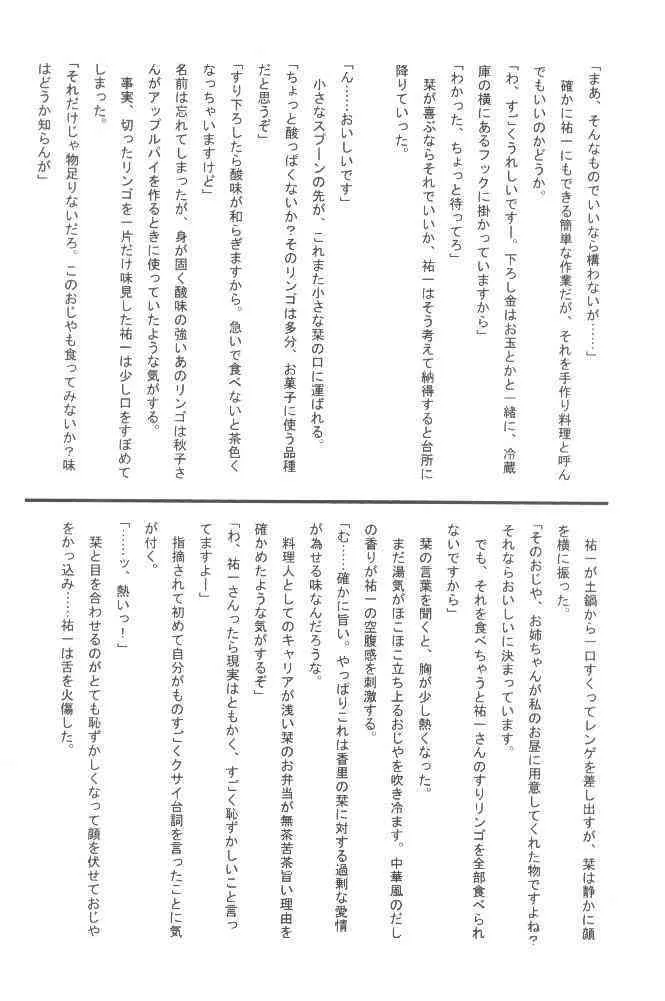 「まあ、そんなものでいいなら構わないが……」
　確かに祐一にもできる簡単な作業だが、それを手作り料理と呼ん
でもいいのかどうか。
「わ、すごくうれしいですー。下ろし金はお玉とかと一緒に、冷蔵
庫の横にあるフックに掛かっていますから」
「わかった、ちょっと待ってろ」
　栞が喜ぶならそれでいいか、祐一はそう考えて納得すると台所に
降りていった。
「ん……おいしいです」
　小さなスプーンの先が、これまた小さな栞の口に運ばれる。
「ちょっと酸っぱくないか？そのリンゴは多分、お菓子に使う品種
だと思うぞ」
「すり下ろしたら酸味が和らぎますから。急いで食べないと茶色く
なっちゃいますけど」
　名前は忘れてしまったが、身が固く酸味の強いあのリンゴは秋子さ
んがアップルパイを作るときに使っていたような気がする。
　事実、切ったリンゴを一片だけ味見した祐一は少し口をすぼめて
しまった。
「それだけじゃ物足りないだろ。このおじやも食ってみないか？味
はどうか知らんが」
　祐一が土鍋から一口すくってレンゲを差し出すが、栞は静かに顔
を横に振った。
「そのおじや、お姉ちゃんが私のお昼に用意してくれた物ですよね？
それならおいしいに決まっています。
　でも、それを食べちゃうと祐一さんのすりリンゴを全部食べられ
ないですから」
　栞の言葉を聞くと、胸が少し熱くなった。
　まだ湯気がほこほこ立ち上るおじやを吹き冷ます。中華風のだし
の香りが祐一の空腹感を刺激する。
「む……確かに旨い。やっぱりこれは香里の栞に対する過剰な愛情
が為せる味なんだろうな。
　料理人としてのキャリアが浅い栞のお弁当が無茶苦茶旨い理由を
確かめたような気がするぞ」
「わ、祐一さんったら現実はともかく、すごく恥ずかしいこと言っ
てますよー」
　指摘されて初めて自分がものすごくクサイ台詞を言ったことに気
が付く。
「……ッ、熱いっ！」
　栞と目を合わせるのがとても恥ずかしくなって顔を伏せておじや
をかっ込み……祐一は舌を火傷した。